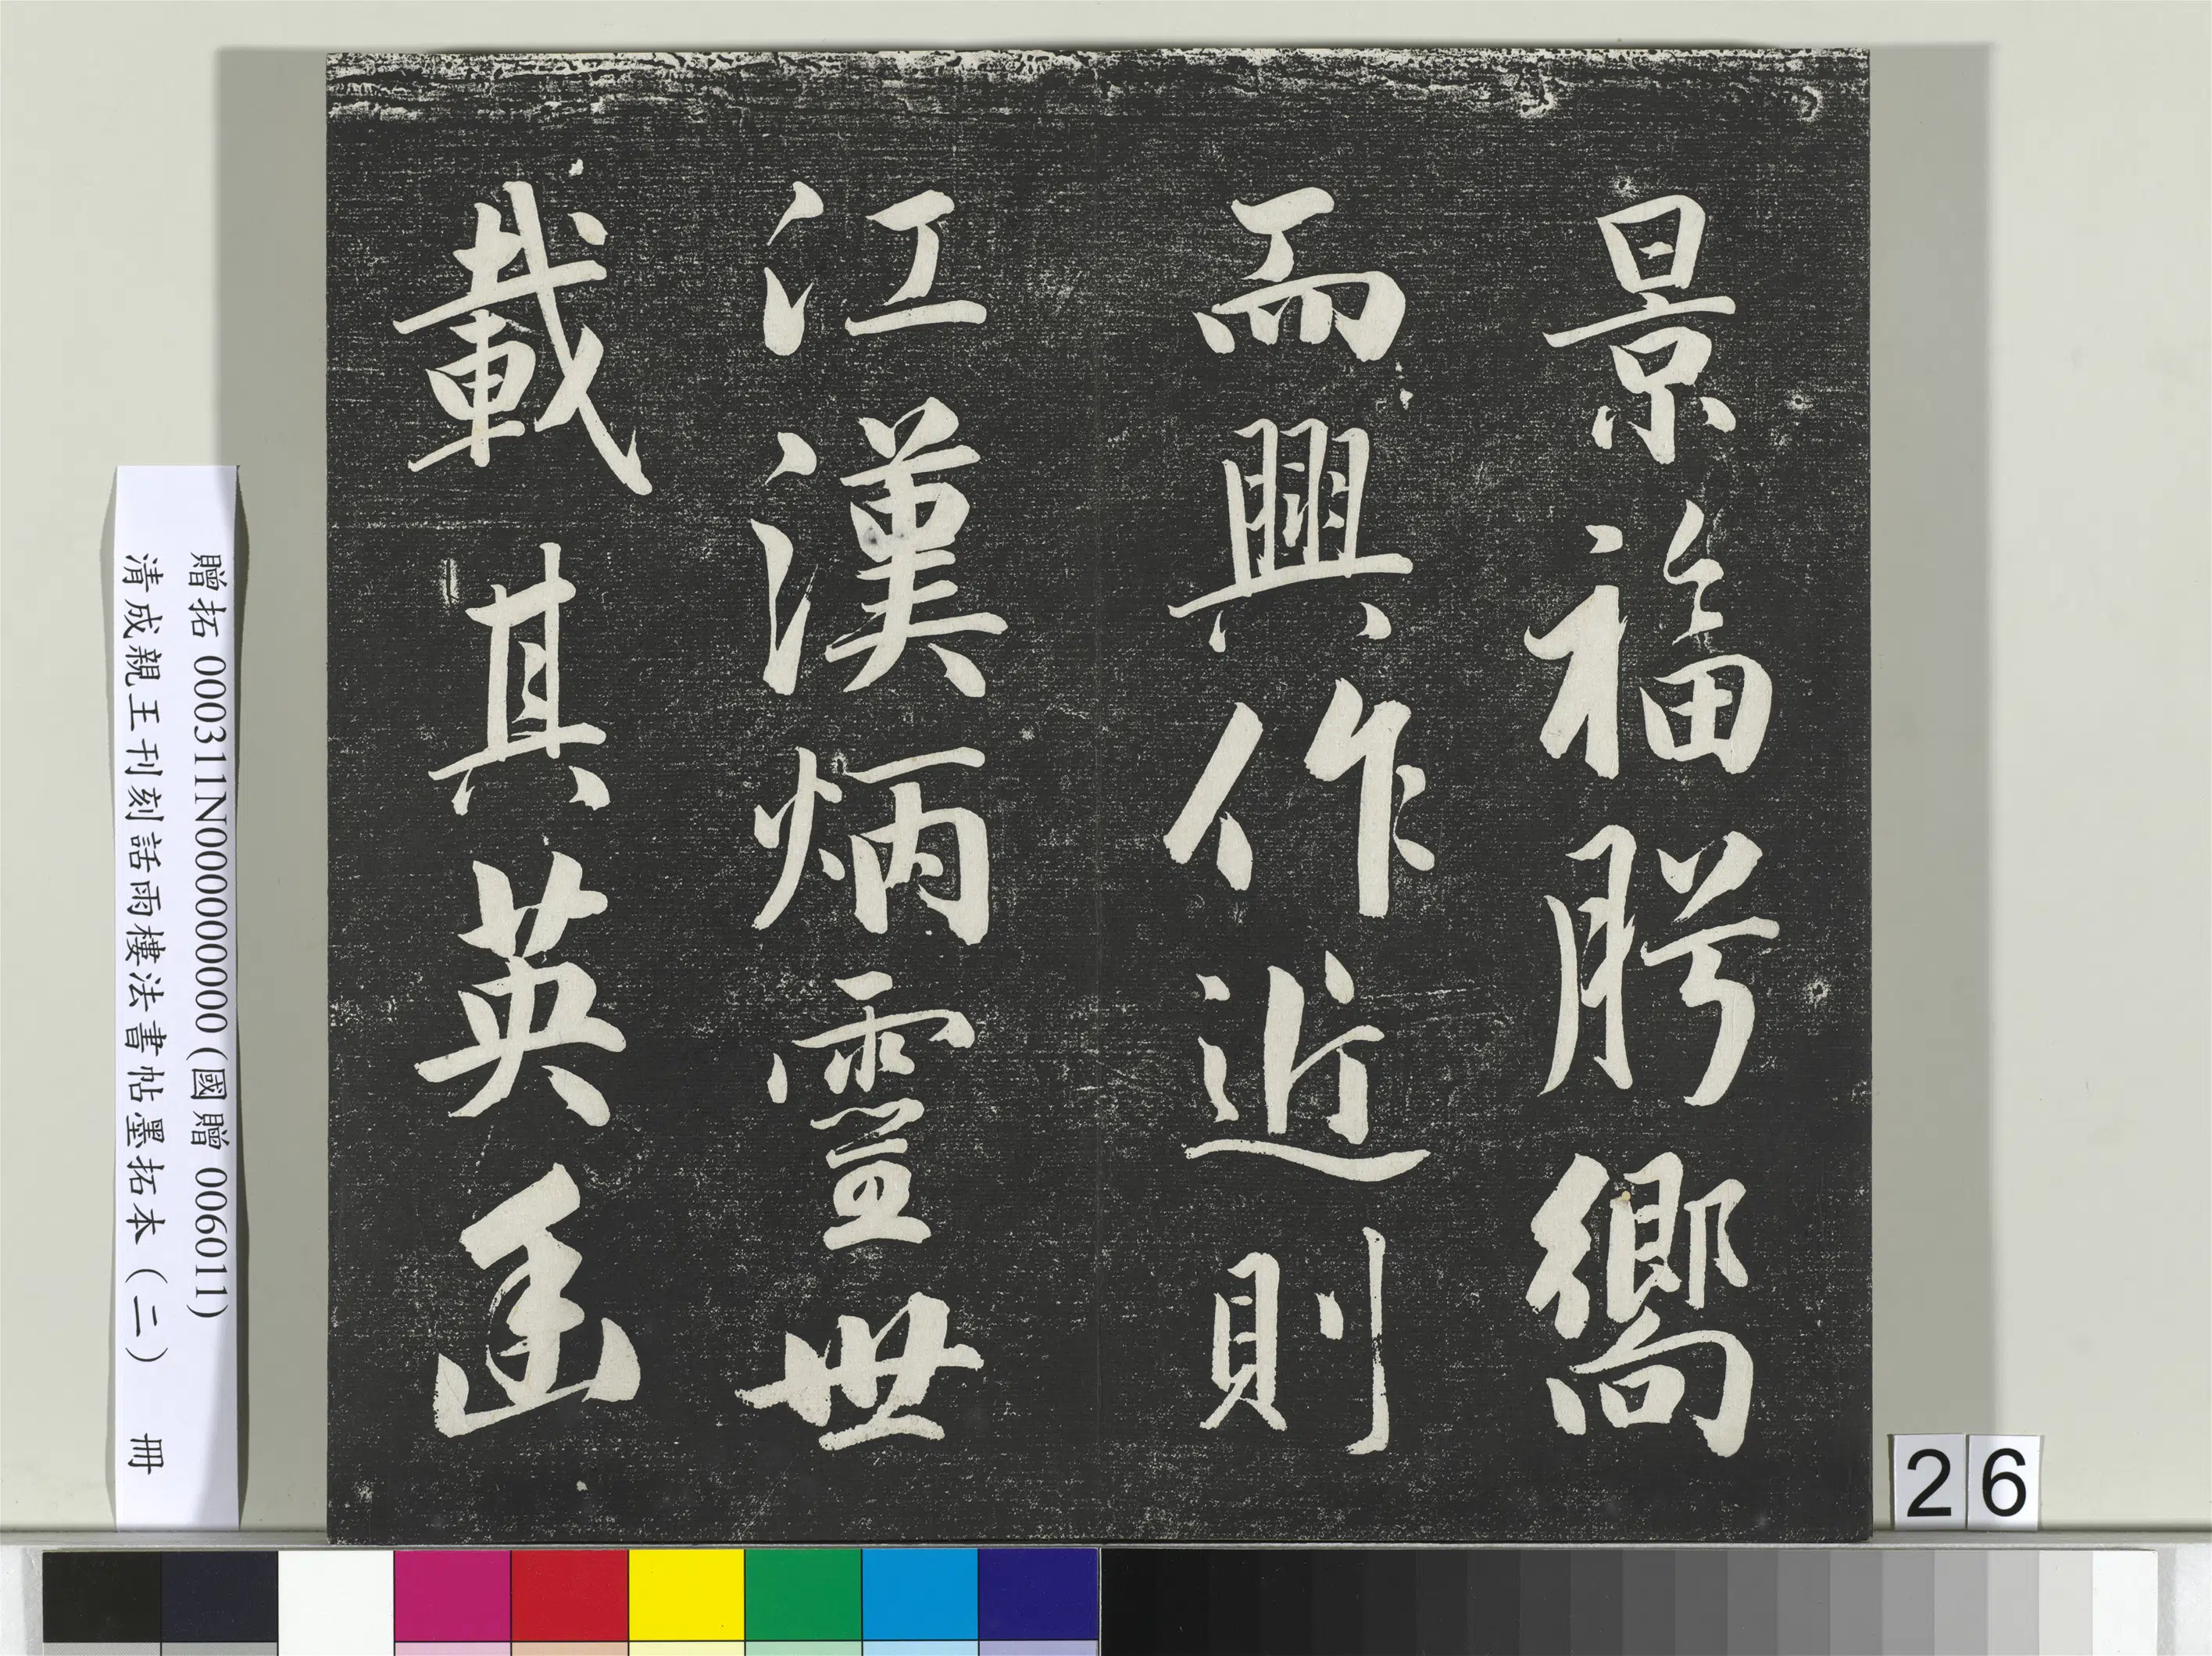 景福肹嚮
而興作近則
江漢炳靈世
載其英
贈拓 000311N000000000 (國贈 006011)
清成親王刊刻話雨樓法書帖墨拓本(二) 冊
26